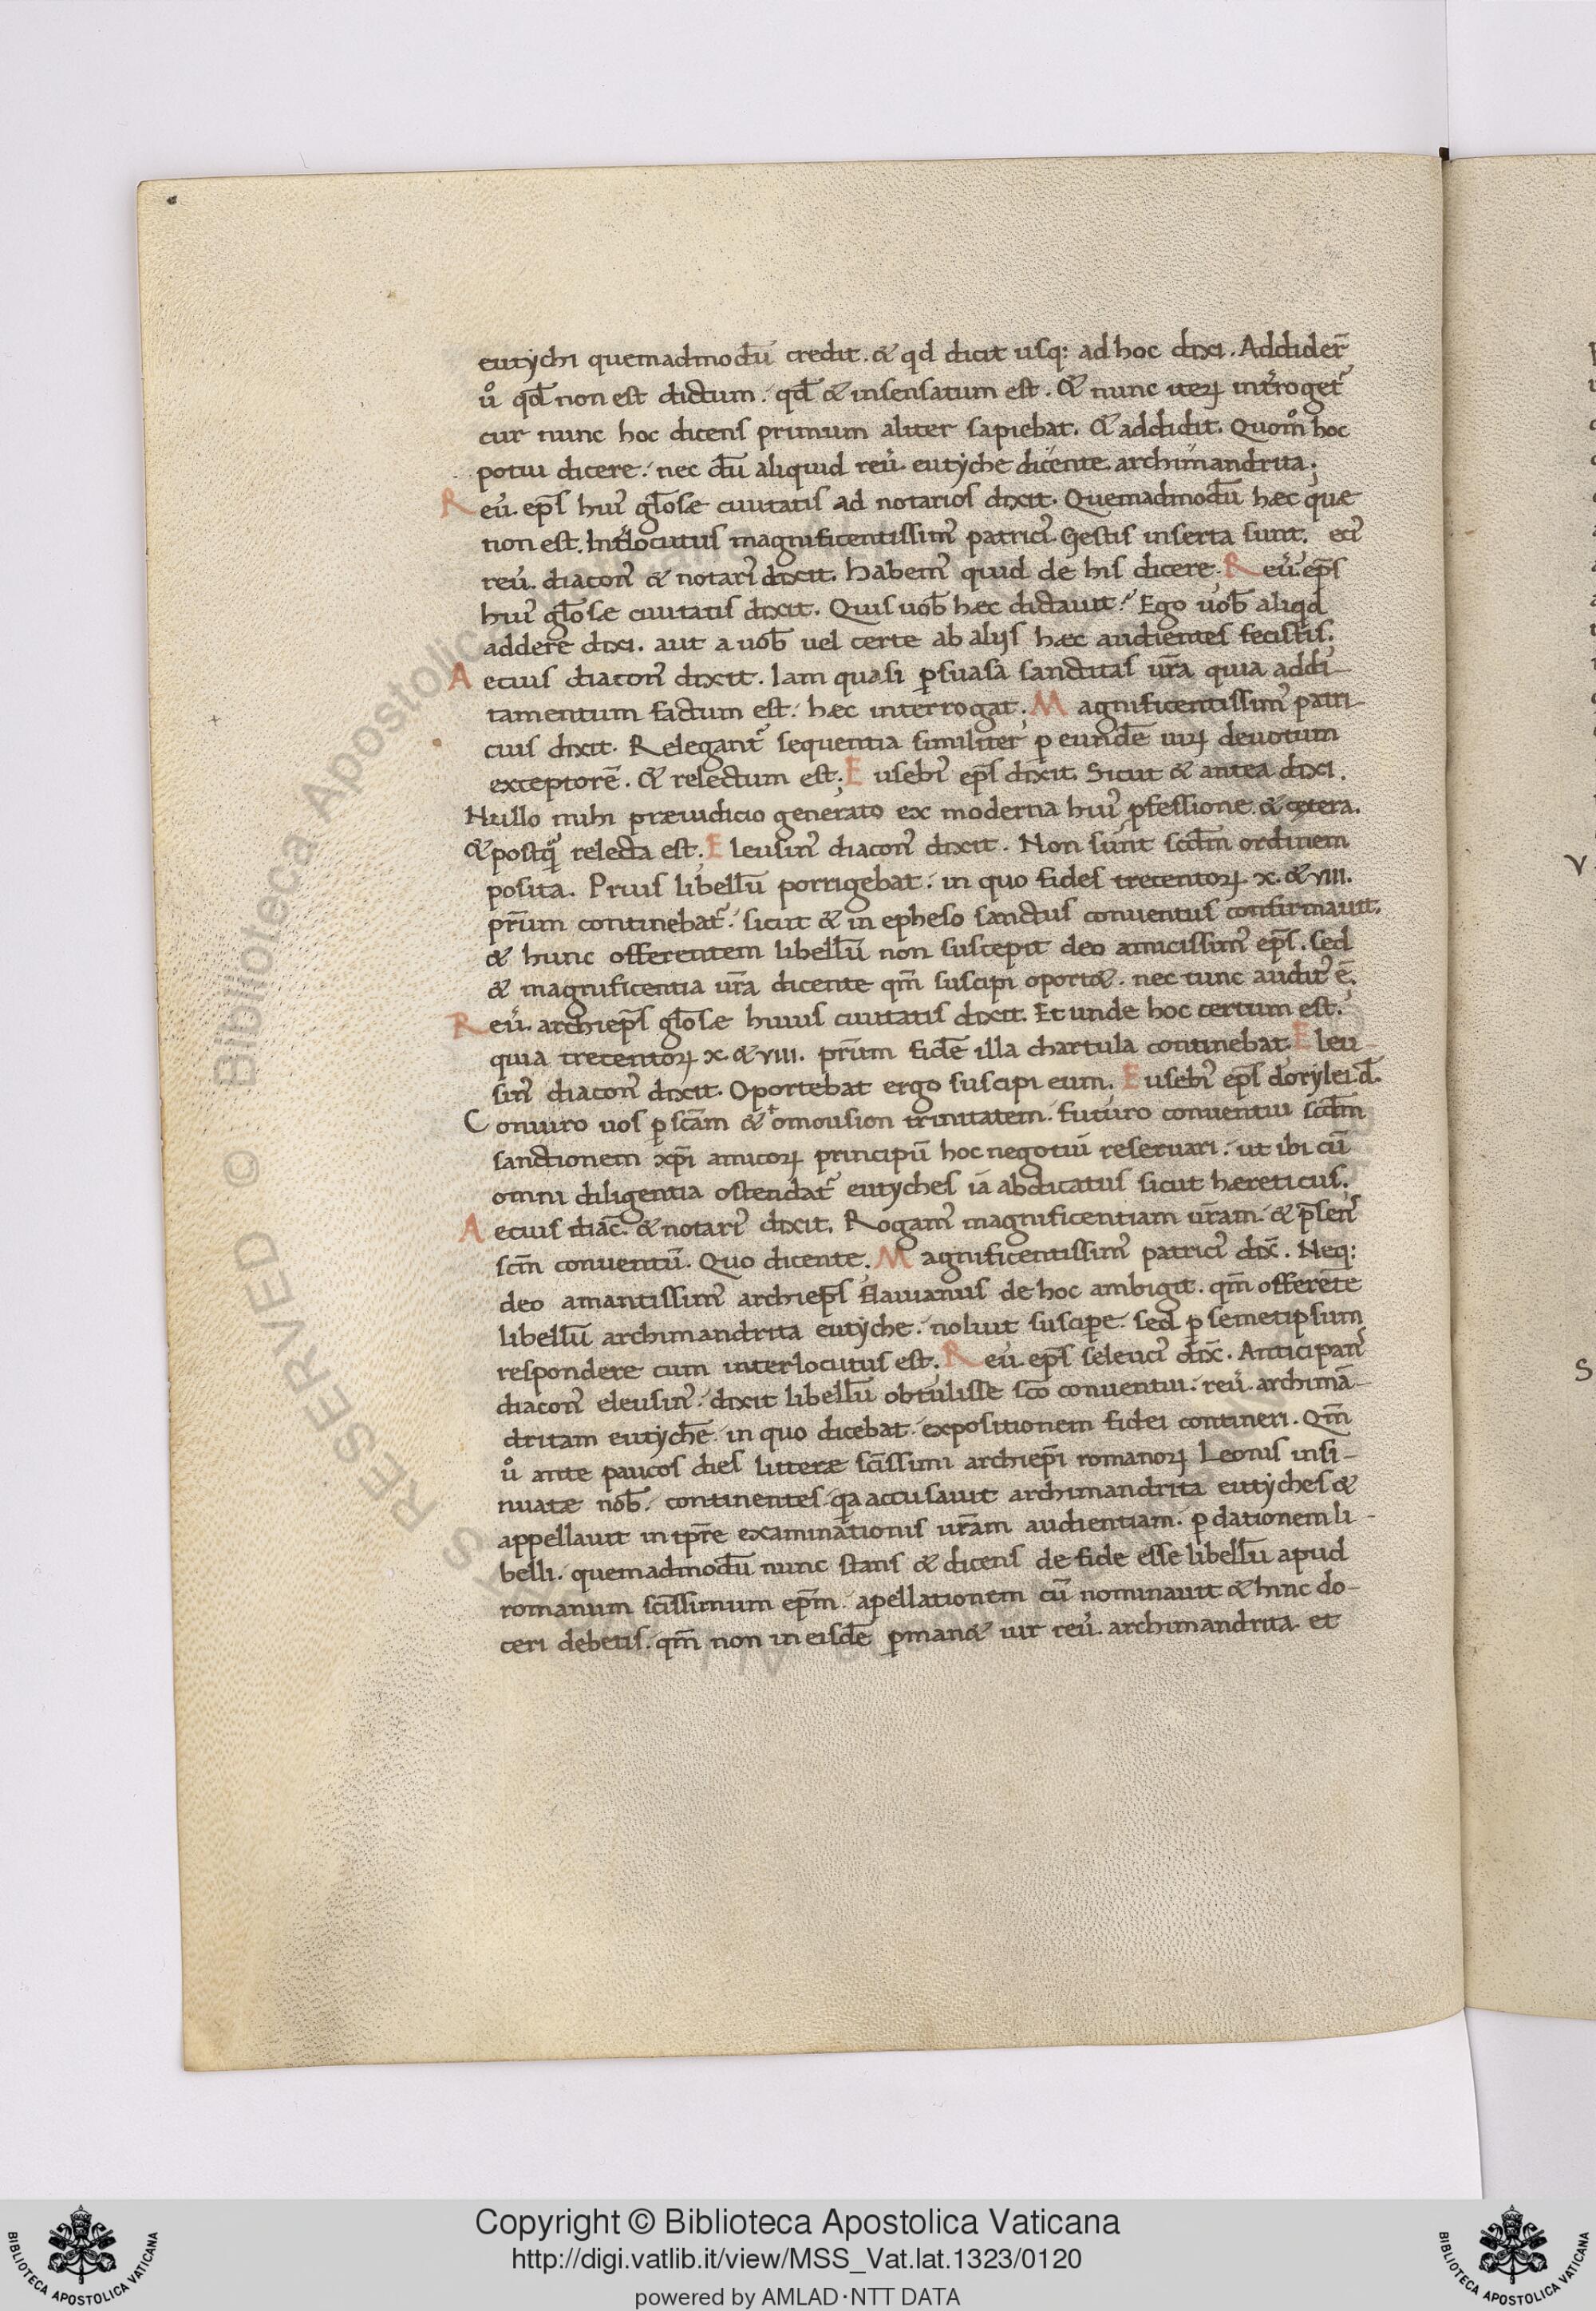 eutychi quemadmodū credit. & qd dicit usq: ad hoc dixi. Addider̄
u° qd̄ non est dictum. qd̄ & insensatum est. & nunc iteꝝ intͬroget᷑
cur nunc hoc dicens primum aliter sapiebat. & addidit. Quom° hoc
potui dicere. nec dū aliquid reu̓. eutyche dicente archimandrita.
Reu̓. ep̄s hui᷒ gl̄osæ ciuitatis ad notarios dixit. Quemadmodū hæc quæ
non est. Int̓locutus magnificentissim᷒ patrici᷒. Gestis inserta sunt. eci᷒
reu̓. diacon᷒ & notari᷒ dixit. Habem᷒ quid de his dicere. Reu̓. ep̄s
hui᷒ gl̄osæ ciuitatis dixit. Quis uob̄ hæc dictauit? Ego uob̄ aliqd
addere dixi. aut a uob̄ uel certe ab alijs hæc audientes fecistis.
Aecius diacon᷒ dixit. Iam quasi ꝑsuasa sanctitas ur̄a quia addi-
tamentum factum est. hæc interrogat. Magnificentissim᷒ patri-
cius dixit. Relegant᷑ sequentia similiter ꝑ eundē uiꝝ deuotum
exceptorē. & relectum est. Eusebi᷒ ep̄s dixit. Sicut & antea dixi.
Nullo mihi præiudicio generato ex moderna hui᷒ ꝓfessione. & cetera.
& postq̄ relecta est. Eleusin᷒ diacon᷒ dixit. Non sunt scdm̄ ordinem
posita. Prius libellū porrigebat. in quo fides trecentoꝝ x. & viii.
pr̄um continebat᷑. sicut & in epheso sanctus conuentus confirmauit.
& hunc offerentem libellū non suscepit deo amicissim᷒ ep̄s. sed
& magnificentia ur̄a dicente qm̄ suscipi oport&. nec tunc audit᷒ ē.
Reu̓. archiep̄s gl̄osæ huius ciuitatis dixit. Et unde hoc certum est.
quia trecentoꝝ x. & viii. pr̄um fidē illa chartula continebat. Eleu-
sin᷒ diacon᷒ dixit. Oportebat ergo suscipi eum. Eusebi᷒ ep̄s dorylei. d̄.
Coniuro uos ꝑ scām & omousion trinitatem. futuro conuentui scdm̄
sanctionem xp̄i amicoꝝ principū hoc negotiū reseruari. ut ibi cū
omni diligentia ostendat᷑ eutyches iā abdicatus sicut hæreticus.
Aecius diāc. & notari᷒ dixit. Rogam᷒ magnificentiam ur̄am. & p̄sen᷒
scm̄ conuentū. Quo dicente. Magnificentissim᷒ patrici᷒ dix̄. Neq:
deo amantissim᷒ archiep̄s flauianus de hoc ambigit. qm̄ offerēte
libellū archimandrita eutyche. noluit suscipe. sed ꝑ semetipsum
respondere cum interlocutus est. Reu̓. ep̄s seleuci᷒ dix̄. Anticipan᷒
diacon᷒ eleusin᷒. dixit libellū obtulisse scō conuentui. reu̓. archimā-
dritam eutychē. in quo dicebat. expositionem fidei contineri. Qm̄
u° ante paucos dies litteræ scīssimi archiep̄i romanoꝝ Leonis insi-
nuatæ nob̄. continentes. qa accusauit archimandrita eutyches &
appellauit in tp̄re examinationis ur̄am audientiam. ꝑ dationem li-
belli. quemadmodū nunc stans & dicens de fide esse libellū apud
romanum scīssimum ep̄m. apellationem cū nominauit & hinc do-
ceri debetis. qm̄ non in eisdē ꝑman& uir reu̓. archimandrita. et
Copyright © Biblioteca Apostolica Vaticana
http://digi.vatlib.it/view/MSS_Vat.lat.1323/0120
powered by AMLAD·NTT DATA